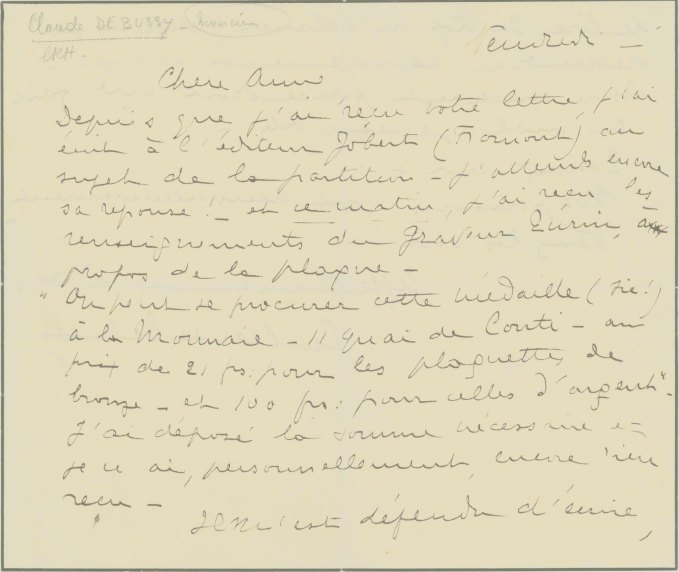 Claude DEBUSSY - musicien
Vendredi -
Chère Amie
Depuis que j'ai reçu votre lettre, j'ai
écrit à l'éditeur Jobert (Fromont) au
sujet de la partition - j'attends encore
sa réponse! - et ce matin, j'ai reçu les
renseignements du graveur à
propos de la plaque -
"On peut se procurer cette médaille (sic!)
à la Monnaie - 11 quai de Conti - au
prix de 21 frs: pour les plaquettes de
bronze - et 100 frs: pour celles d'argent"-
J'ai déposé la somme nécessaire et
je n'ai, personnellement, encore rien
reçu -
Il m'est défendu d'écrire,